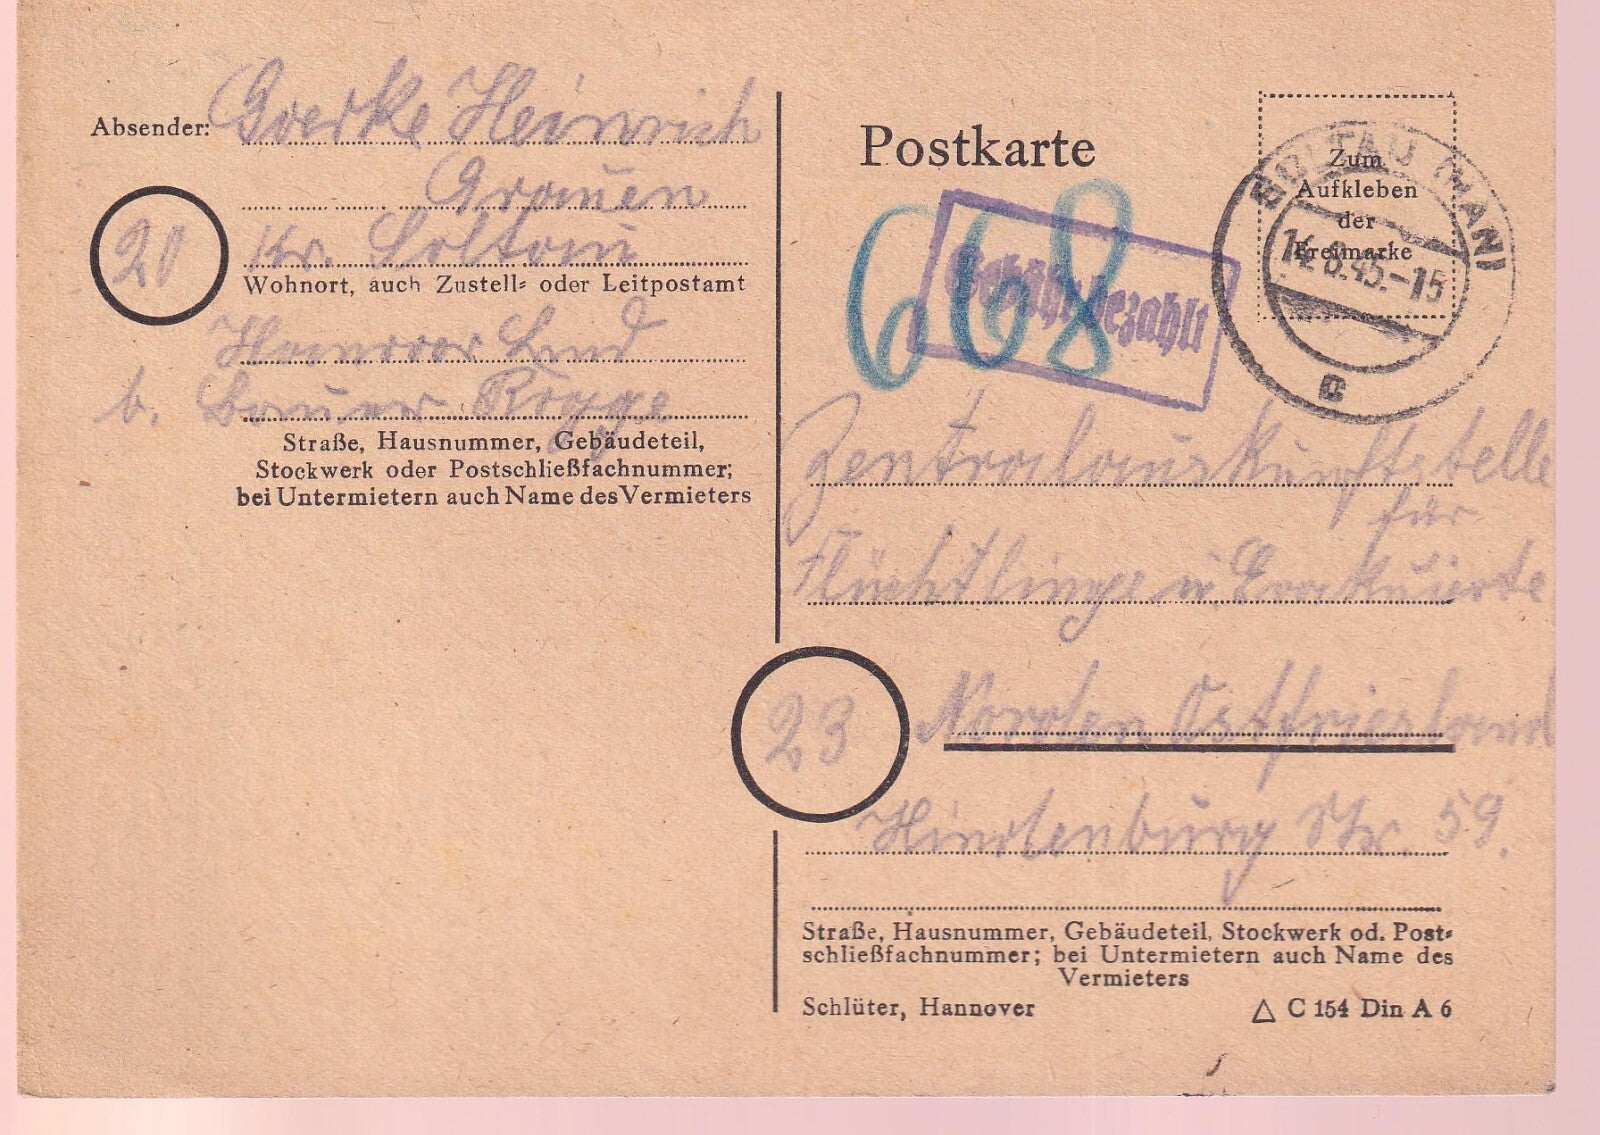 Absender: Goerke Heinrich
Grauen
20 Kr. Soltau
Wohnort, auch Zustell- oder Leitpostamt
Hannover Land
b. Bauer Rögge
Straße, Hausnummer, Gebäudeteil,
Stockwerk oder Postschließfachnummer;
bei Untermietern auch Name des Vermieters
Postkarte
Zum
Aufkleben
der
Freimarke
SOLTAU (HAN)
14.8.45.-15
c
668
Gebühr bezahlt
Zentralauskunftstelle
für
Flüchtlinge u. Evakuierte
23 Norden Ostfriesland
Hindenburg Str. 59.
Straße, Hausnummer, Gebäudeteil, Stockwerk od. Post-
schließfachnummer; bei Untermietern auch Name des
Vermieters
Schlüter, Hannover △ C 154 Din A 6